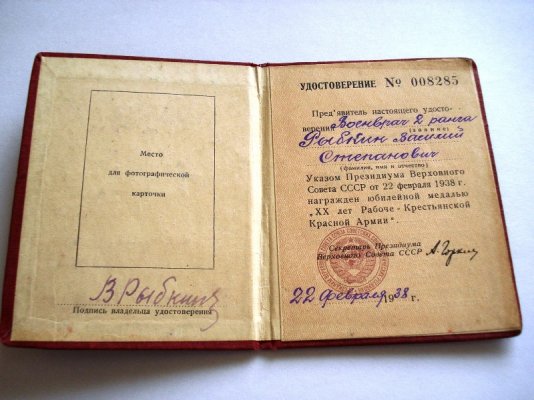 Место
для фотографической
карточки
В Рыбкин
Подпись владельца удостоверения
УДОСТОВЕРЕНИЕ № 008285
Пред'явитель настоящего удосто-
верения Военврач 2 ранга
(звание)
Рыбкин Василий
Степанович
(фамилия, имя и отчество)
Указом Президиума Верховного
Совета СССР от 22 февраля 1938 г.
награжден юбилейной медалью
„XX лет Рабоче-Крестьянской
Красной Армии".
Секретарь Президиума
Верховного Совета СССР А. Горкин
22 февраля 1938 г.